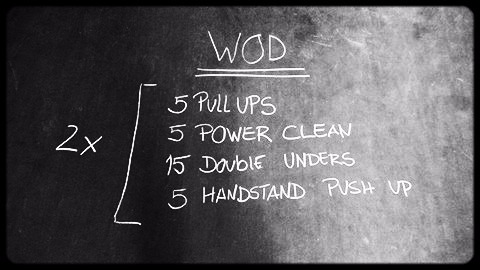 WOD
2x
5 PULL UPS
5 POWER CLEAN
15 DOUBLE UNDERS
5 HANDSTAND PUSH UP